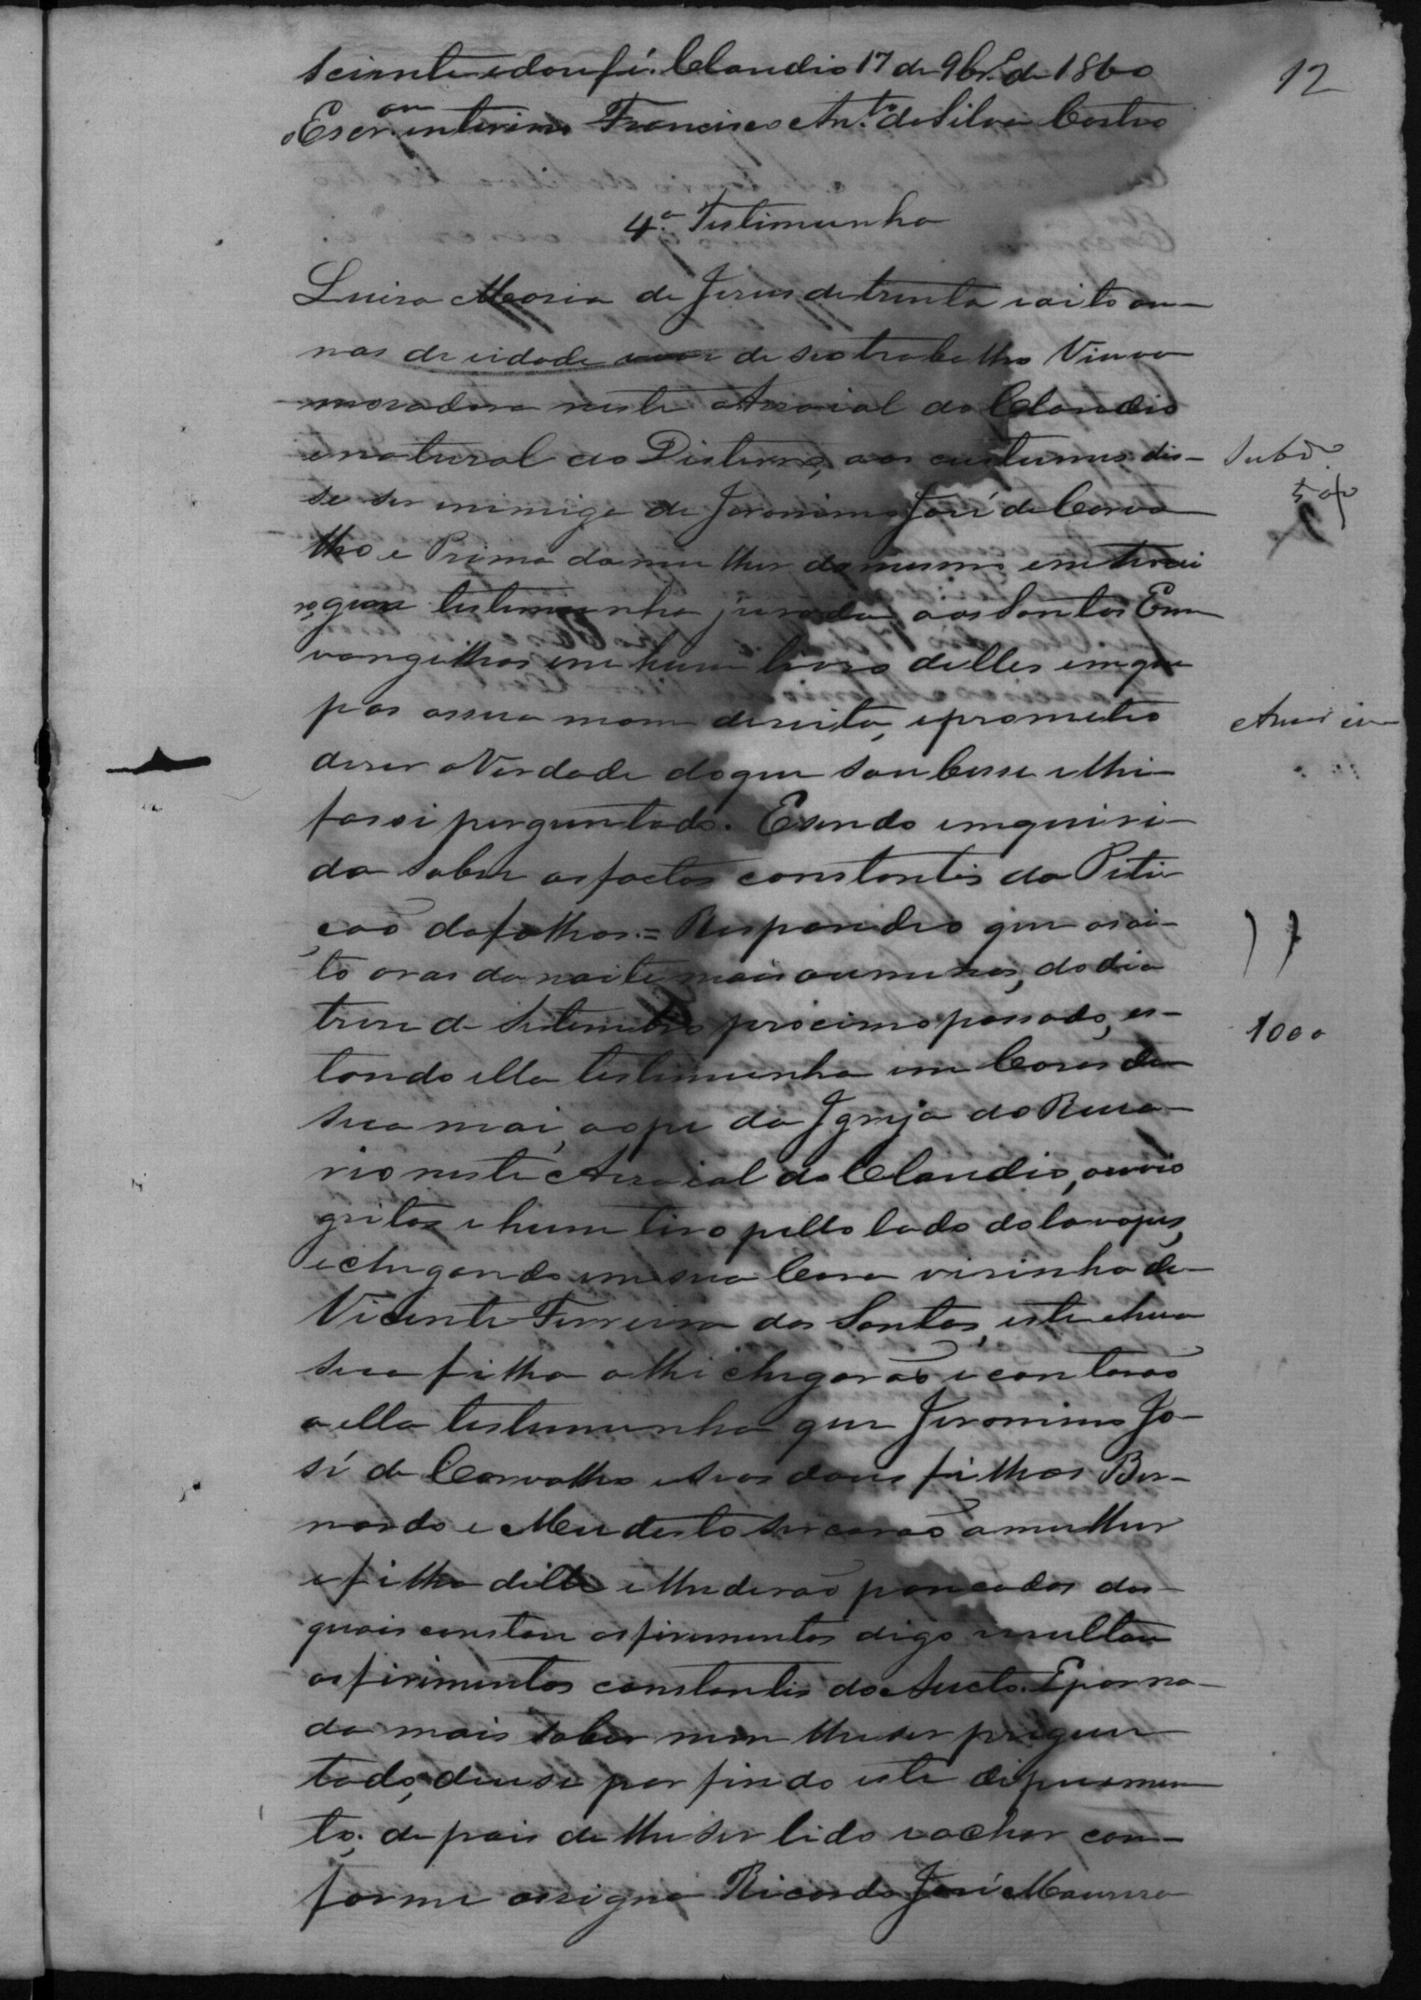 sciente edou fé. Claudio 17 de 9br.º de 1860
12
o Escr.am interino Francisco An.to da Silva Castro
4.a Testimunha
Luiza Maria de Jesus de trinta e oito an-
nos de eidade vive de seo trabalho Viuva
moradora neste Arraial do Claudio
e natural do Disterro, aos custumes dis-
se ser inimiga de Jeronimo José de Carva
lho e Prima da mulher do mesmo
testimunha jurada aos Santos Eva
vangelhos em hum livro delles emque
pos assua mam direita, eprometeo
dizer a Verdade doque soubesse e lhe
fosse perguntado. Esendo enquiri-
da sobre os factos constantes da Peti-
ção de folhas = Respondeo que as oi-
to oras da noite mais ou menos, do dia
treze de Setembro procimo passado, es-
tando ella testimunha em Casa de
sua mai, ao pé da Igreja do Rusa-
rio neste Arraial do Claudio, ouvio
gritos e hum tiro pello lado do lavapés,
echegando em sua Casa visinha de
Vicente Ferreira dos Santos, este ehua
sua filha alhi chegarão e contarão
a ella testemunha que Jeronimo Jo-
sé de Carvalho eseos dous filhos Ber-
nardo e Meudesto sercarão a mulher
e filha delle e lhe derão pancadas das
quais constou os firimentos digo resultou
os firimentos constantes do Aucto. E por na-
da mais saber nem lhe ser pregun
tado, deuse por findo este depuimen
to, depois de lhe ser lido e achar con-
forme assigna Ricardo José Moureira
1000